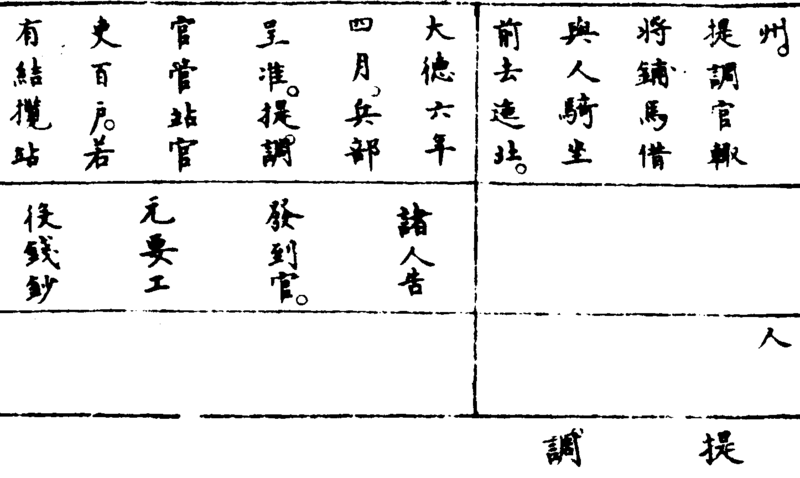 州。
提調官輙
將鋪馬借
與人騎坐
前去迤北。
大德六年
四月、兵部
呈准。提調
官管站官
吏百戶。若
有結攬站
諸人告
發到官。
元要工
役錢鈔
人
提
調